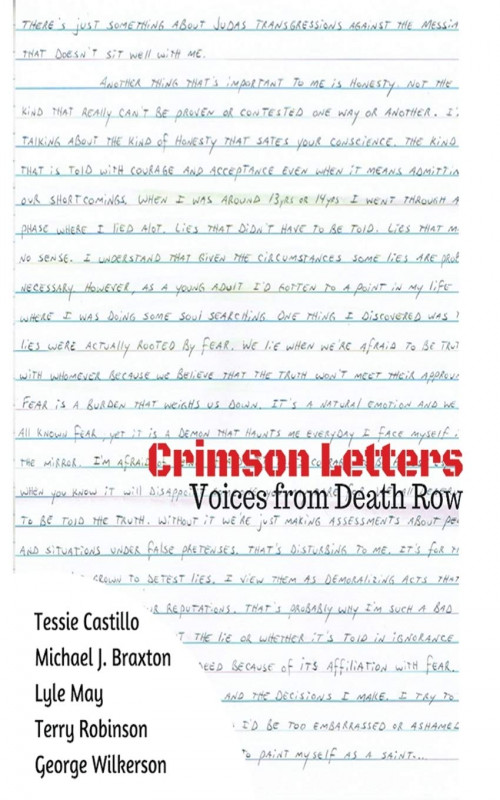 THERE'S JUST SOMETHING ABOUT JUDAS TRANSGRESSIONS AGAINST THE MESSIA
THAT DOESN'T SIT WELL WITH ME.
ANOTHER THING THAT'S IMPORTANT TO ME IS HONESTY. NOT THE
KIND THAT REALLY CAN'T BE PROVEN OR CONTESTED ONE WAY OR ANOTHER. I'
TALKING ABOUT THE KIND OF HONESTY THAT SATES YOUR CONSCIENCE. THE KIND
THAT IS TOLD WITH COURAGE AND ACCEPTANCE EVEN WHEN IT MEANS ADMITTIN
OUR SHORTCOMINGS. WHEN I WAS AROUND 13yrs OR 14yrs I WENT THROUGH A
PHASE WHERE I LIED ALOT. LIES THAT DIDN'T HAVE TO BE TOLD. LIES THAT M
NO SENSE. I UNDERSTAND THAT GIVEN THE CIRCUMSTANCES SOME LIES ARE PROB
NECESSARY. HOWEVER, AS A YOUNG ADULT I'D GOTTEN TO A POINT IN MY LIFE
WHERE I WAS DOING SOME SOUL SEARCHING. ONE THING I DISCOVERED WAS
LIES WERE ACTUALLY ROOTED BY FEAR. WE LIE WHEN WE'RE AFRAID TO BE TRU
WITH WHOMEVER BECAUSE WE BELIEVE THAT THE TRUTH WON'T MEET THEIR APPROV
FEAR IS A BURDEN THAT WEIGHS US DOWN. IT'S A NATURAL EMOTION AND WE
ALL KNOWN FEAR, YET IT IS A DEMON THAT HAUNTS ME EVERYDAY I FACE MYSELF
THE MIRROR. I'M AFRAID
Crimson Letters
WHEN YOU KNOW IT WILL DISAPPOI
Voices from Death Row
TO BE TOLD THE TRUTH. WITHOUT IT WE'RE JUST MAKING ASSESSMENTS ABOUT PE
AND SITUATIONS UNDER FALSE PRETENSES. THAT'S DISTURBING TO ME. IT'S FOR
GROWN TO DETEST LIES. I VIEW THEM AS DEMORALIZING ACTS THAT
REPUTATIONS. THAT'S PROBABLY WHY I'M SUCH A BAD
THE LIE OR WHETHER IT'S TOLD IN IGNORANCE
BECAUSE OF ITS AFFILIATION WITH FEAR.
AND THE DECISIONS I MAKE. I TRY TO
I'D BE TOO EMBARRASSED OR ASHAMED
TO PAINT MYSELF AS A SAINT...
Tessie Castillo
Michael J. Braxton
Lyle May
Terry Robinson
George Wilkerson